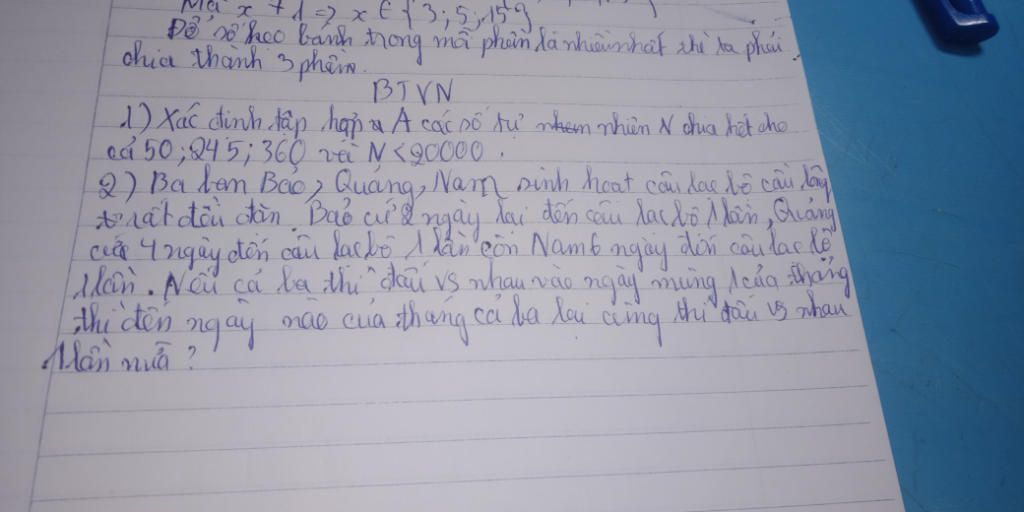 Mà x + 1 => x ∈ {3; 5; 15}
Để số kẹo bánh trong mỗi phần là nhiều nhất thì ta phải
chia thành 3 phần.
BTVN
1) Xác định tập hợp A các số tự nhiên N chia hết cho
cả 50; 245; 360 với N < 20000.
2) Ba bạn Bảo, Quảng, Nam sinh hoạt câu lạc bộ cầu lông
rất đều đặn. Bảo cứ 2 ngày lại đến câu lạc bộ 1 lần, Quảng
cứ 4 ngày đến câu lạc bộ 1 lần còn Nam 6 ngày đến câu lạc bộ
1 lần. Nếu cả ba thi đấu vs nhau vào ngày mùng 1 của tháng
thì đến ngày nào của tháng cả ba lại cùng thi đấu vs nhau
1 lần nữa?